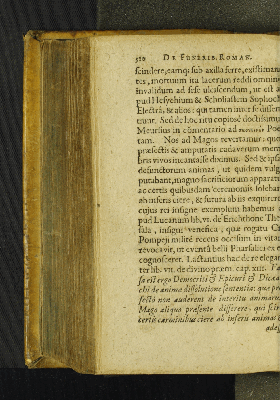 510 DE FUNERIB. ROMAN.
scindere, eamq; sub axilla ferre, existiman
tes, mortuum ita lacerum reddi omnino
invalidum ad sese ulciscendum, ut est a-
pud Hesychium & Scholiastem Sophocl.
Electrâ, & alios: qui tamen inter se dissen-
tiunt. Sed de hoc ritu copiosè doctissimus
Meursius in commentario ad Poe-
tam. Nos ad Magos revertamur: quo
præsectis & amputatis cadaverum mem-
bris vivos incantasse diximus. Sed & ipsas
defunctorum animas, ut quidem vulgò
putabant, magno sacrificiorum apparatu
ac certis quibusdam ceremoniis solebant
ab inferis ciere, & futura ab iis exquirere
cujus rei insigne exemplum habemus a-
pud Lucanum lib. vi. de Erichthone Thes-
sala, insigni venefica, quæ rogatu
Pompeji militē recens occisum in vitam
revocavit, ut eventū belli Pharsalici ex eo
cognosceret. Lactantius hac de re elegan-
ter lib. vii. de divino præm. cap. xiii. Fal-
sa est ergo Democriti & Epicuri & Dicæar-
chi de animæ dissolutione sententia: qui pro-
fectò non auderent de interitu animarum
Mago aliquo præsente disserere, qui sciret
certis carminibus ciere ab inferis animas &